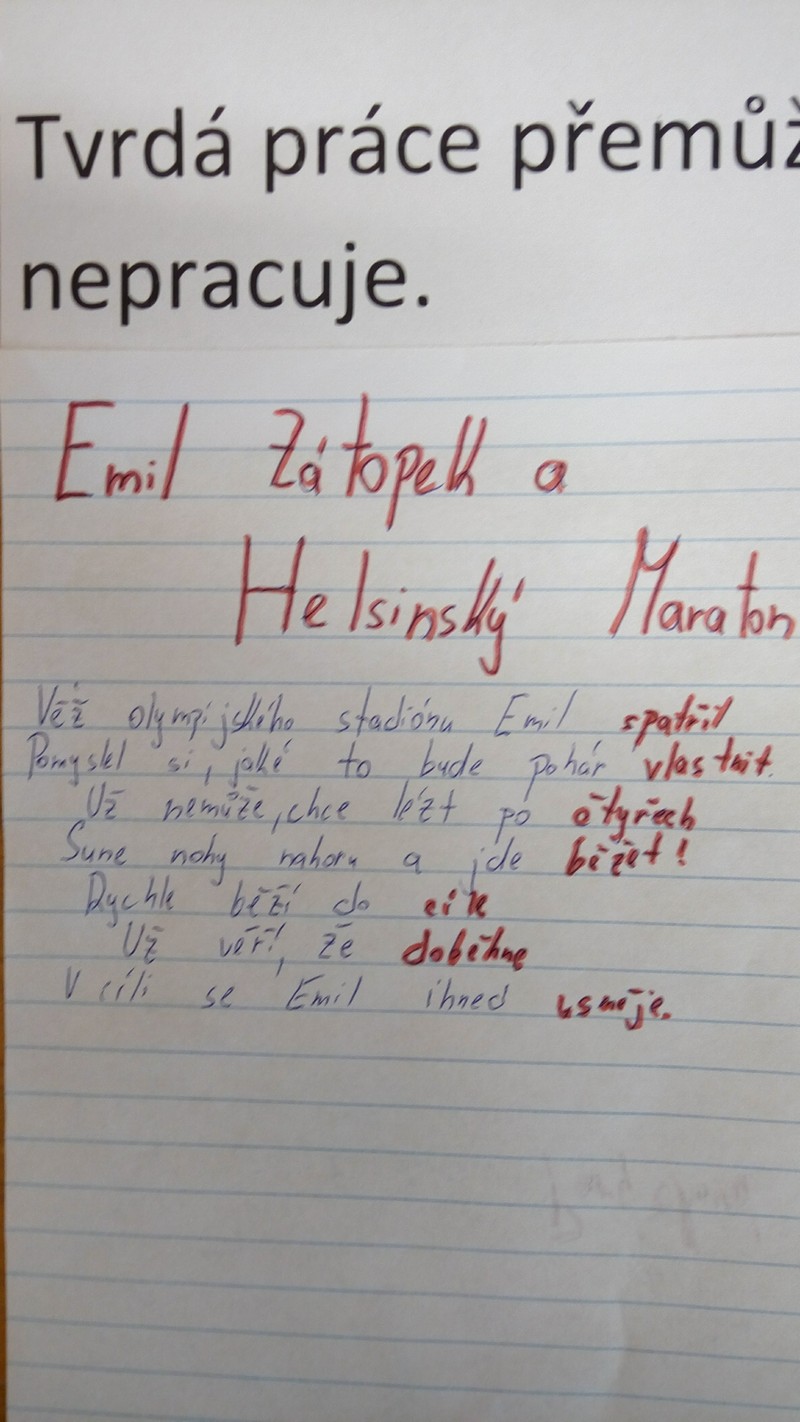 Tvrdá práce přemůž
nepracuje.
Emil Zátopek a
Helsinský Maraton
Věž olympijského stadiónu Emil spatřil
Pomyslel si, jaké to bude pohár vlastnit.
Už nemůže, chce lézt po čtyřech
Sune nohy nahoru a jde běžet!
Rychle běží do cíle
Už věří, že doběhne
V cíli se Emil ihned usměje.